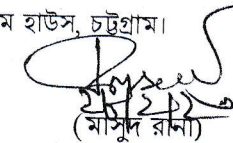 ম হাউস, চট্টগ্রাম।
(মাসুদ রানা)